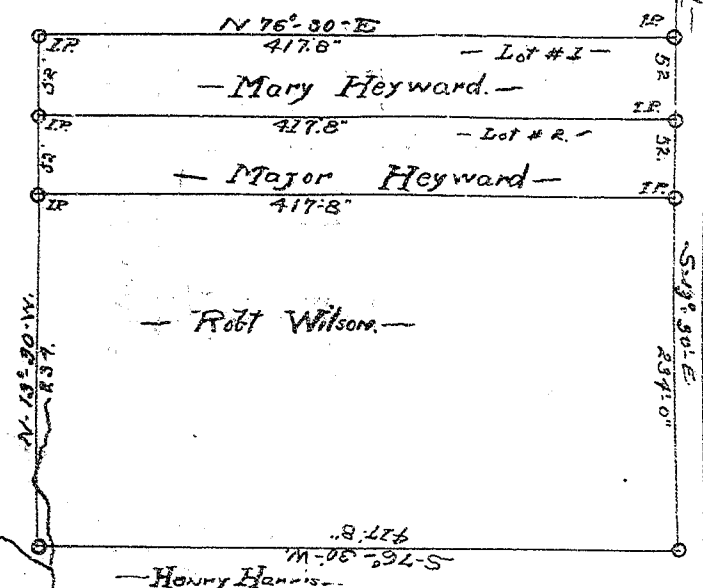 N 76°-30'-E
I.P.
I.P.
417'.8"
— Lot #1 —
52'
52
— Mary Heyward. —
I.P.
I.P.
417'.8"
— Lot # 2. —
52'
52.
— Major Heyward —
I.P.
I.P.
417'-8"
— Robt Wilson. —
N-13°-30'-W.
234.
S-13°-30'-E.
234'-0"
417'-8"
S-76°-30'-W.
— Henry Harris. —